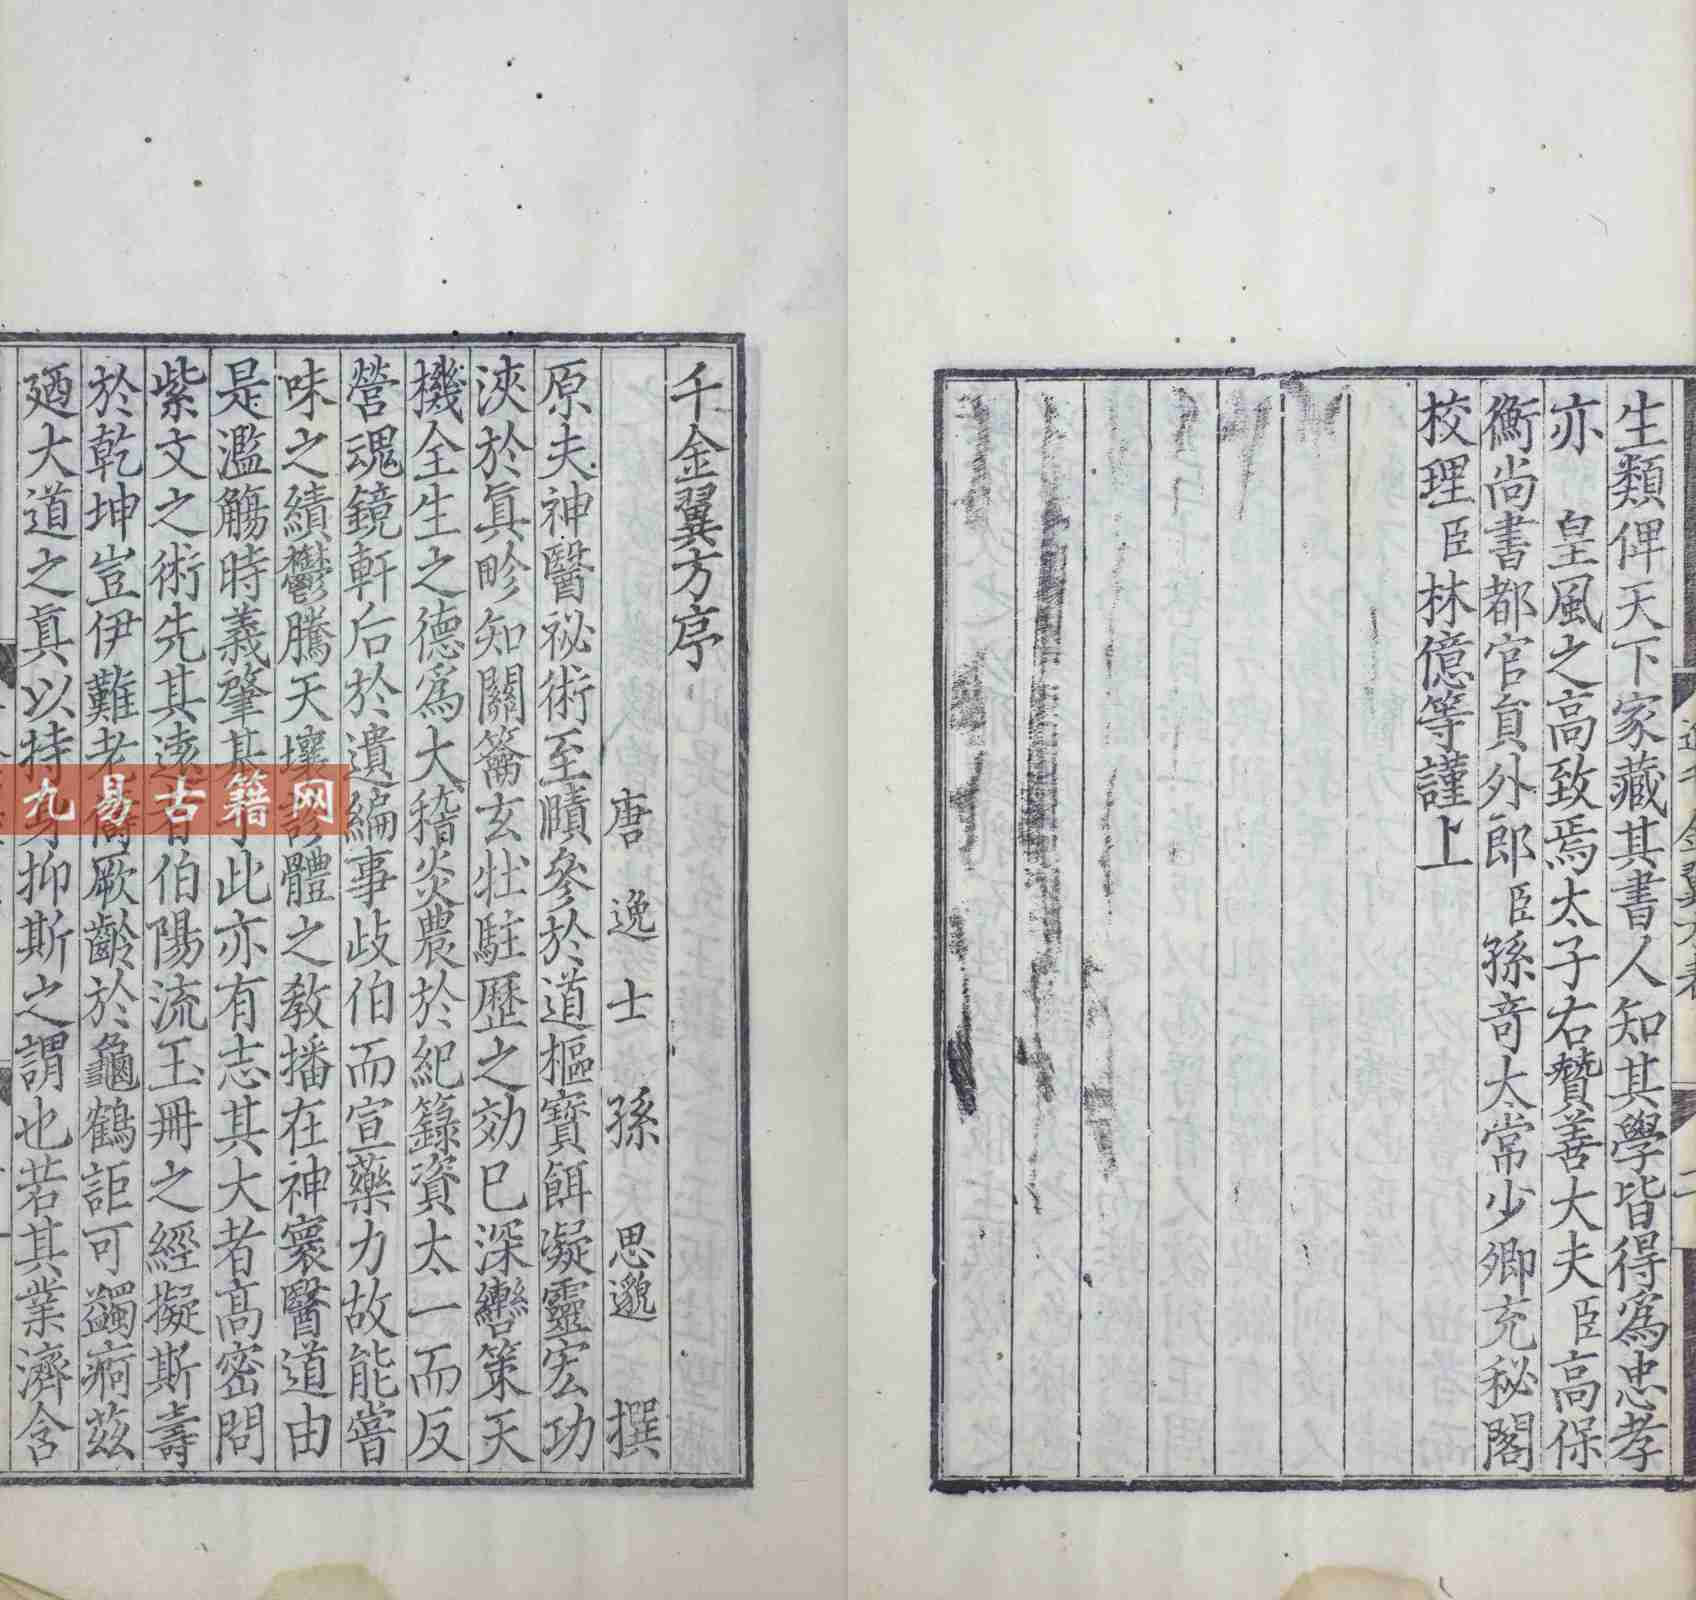 生類俾天下家藏其書人知其學皆得爲忠孝
亦　皇風之高致焉太子右贊善大夫臣高保
衡尚書都官員外郎臣孫竒太常少卿充秘閣
校理臣林億等謹上
千金翼方序
唐逸士孫思邈撰
原夫神醫祕術至賾參於道樞寶餌凝靈宏功
浹於眞畛知關籥玄牡駐歷之効巳深轡策天
機全生之德爲大稽炎農於紀籙資太一而反
營魂鏡軒后於遺編事歧伯而宣藥力故能嘗
味之績鬱騰天壤診體之教播在神寰醫道由
是濫觴時義肇基于此亦有志其大者高密問
紫文之術先其遠者伯陽流玉冊之經擬斯壽
於乾坤豈伊難老儔厥齡於龜鶴詎可蠲痾茲
廼大道之眞以持身抑斯之謂也若其業濟含
九易古籍网